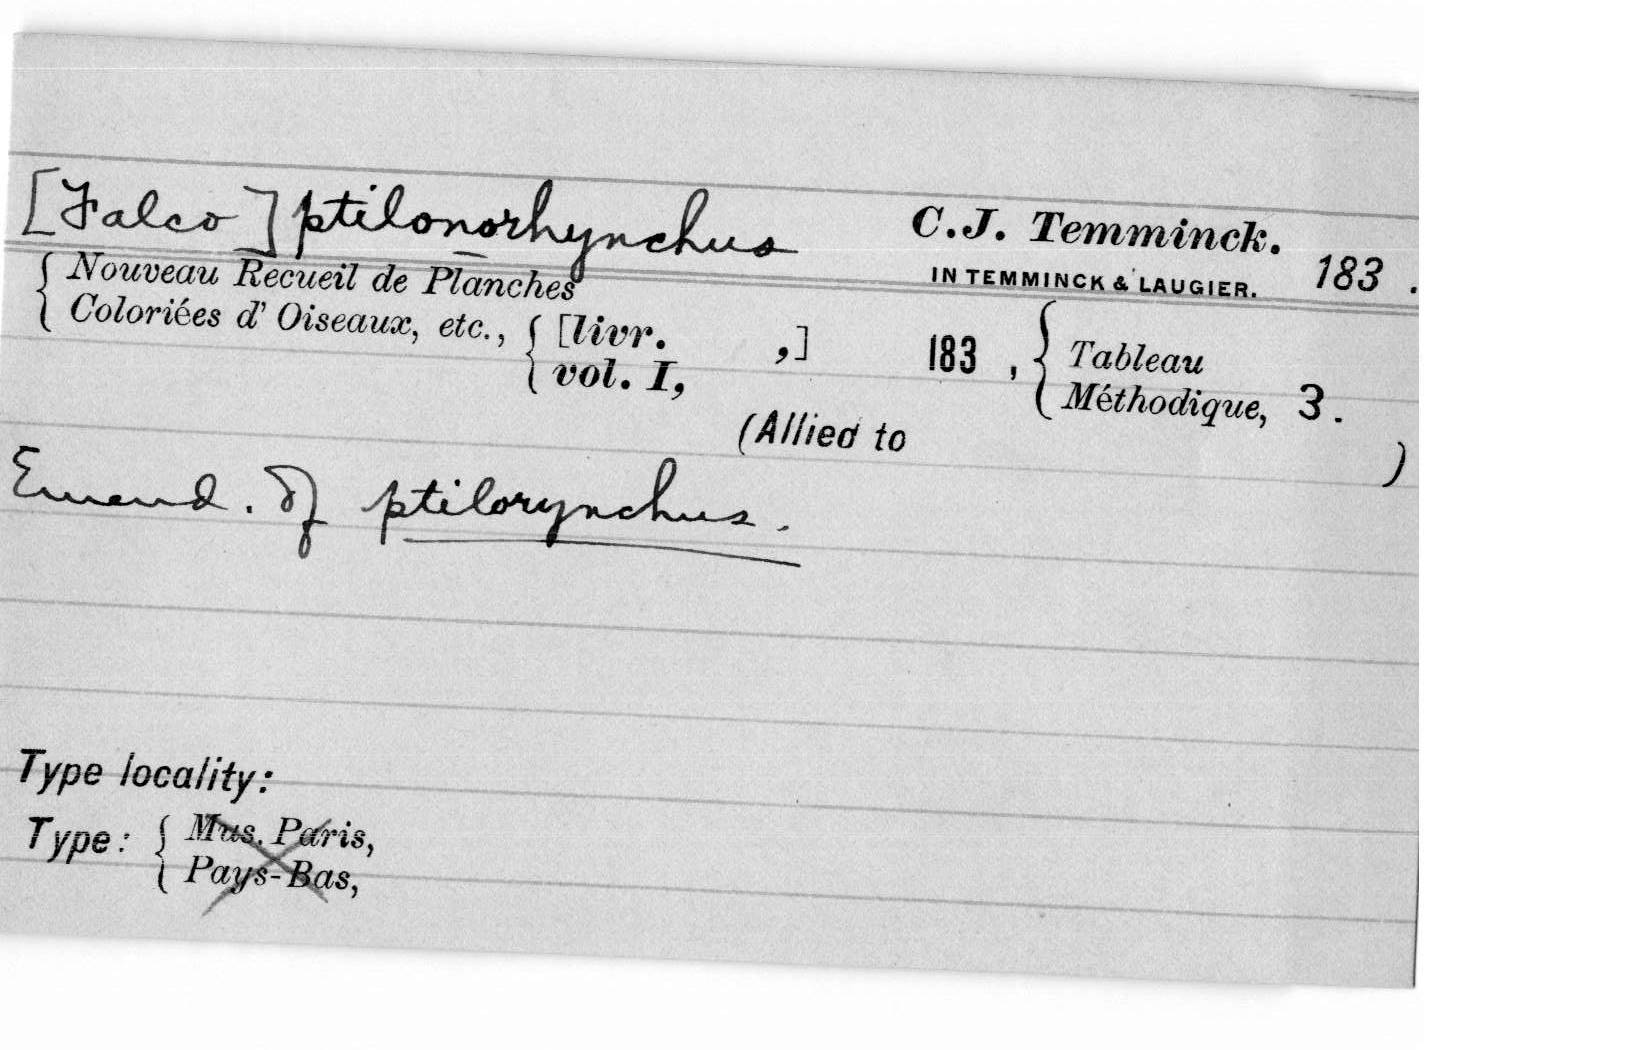 [Falco] ptilonorhynchus C.J. Temminck.
IN TEMMINCK & LAUGIER. 183.
{ Nouveau Recueil de Planches
Coloriées d' Oiseaux, etc., { [livr. ,] 183 , { Tableau
vol. I, Méthodique, 3.
(Allied to )
Emend. of ptilorynchus.
Type locality:
Type: { Mus. Paris,
Pays-Bas,